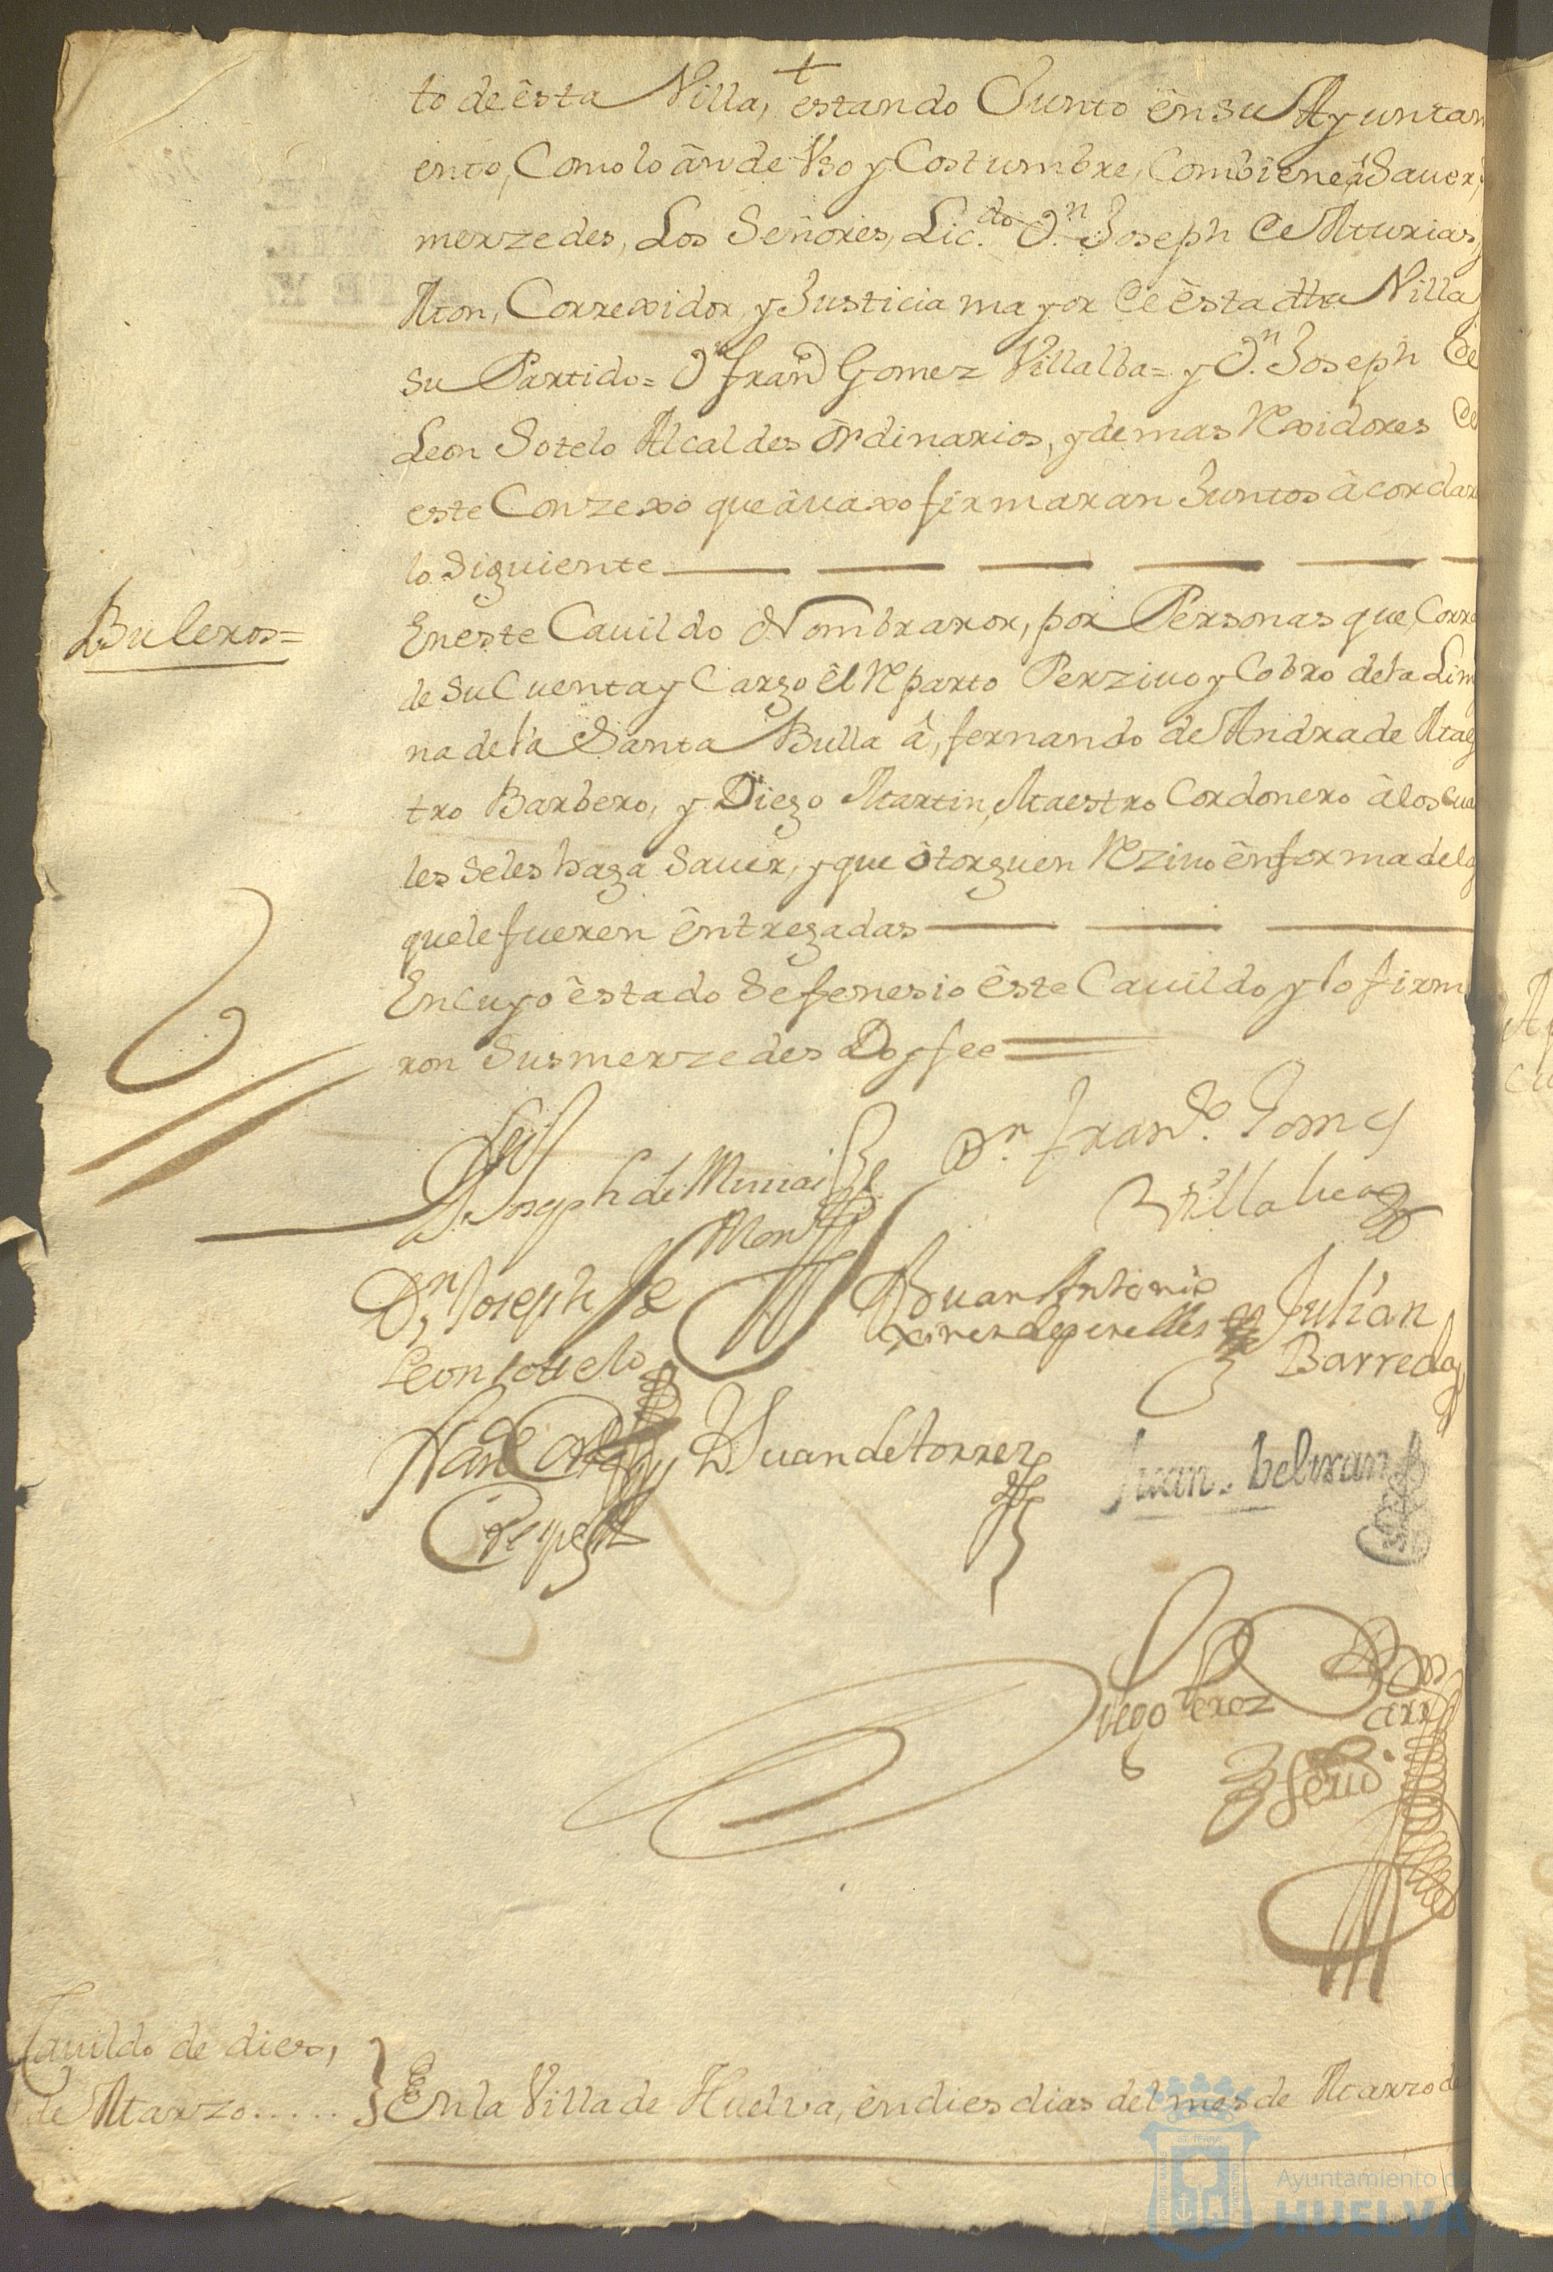 to de èsta Villa, estando Junto ên su Ayuntam
ento, Como lo ân de Vso y Costumbre, Combiene, â Sauer,
merzedes, Los Señores, Lic.do D.n Joseph de Murias, y
Mon, Correxidor, y Justicia mayor de èsta dha Villa y
su Partido= Dn franco Gomez Villalba= y D.n Joseph de
Leon Sotelo Alcaldes Ordinarios, y demas Rexidores de
este Conzexo que âuaxo firmaran Juntos âcordar
lo Siguiente
Buleros=
En este Cauildo Nombraron, por Personas que, Corra
de su Cuenta y Cargo êl Rparto Perziuo y Cobro de la Lim
na de la Santa Bulla â, fernando de Andrade Maes
tro Barbero, y Diego Martin, Maestro Cordonero â los cua
les se les haga Sauer, y que ôtorguen Rziuo ên forma de las
que le fueren êntregadas
En cuyo êstado se fenesio êste Cauildo y lo firm
ron Sus merzedes Doy fee
Joseph de Murias
Mon
Dn. Fran.co Gomes
Villalua
Dn Joseph de
Leon Sotelo
Juan Antonio
Julian
Barreda
Juan de torres
Juan. beltran
Diego Perez
Cauildo de dies,
de Marzo.....
En la Villa de Huelva, ên dies dias del mes de Marzo de
Ayuntamiento de
HUELVA